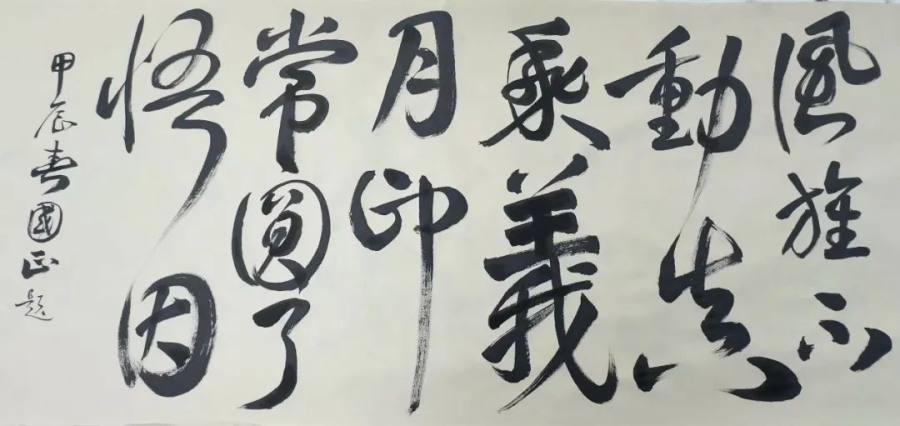 風旌不
動真
乘義
月印
常圓了
悟因
甲辰春國正題